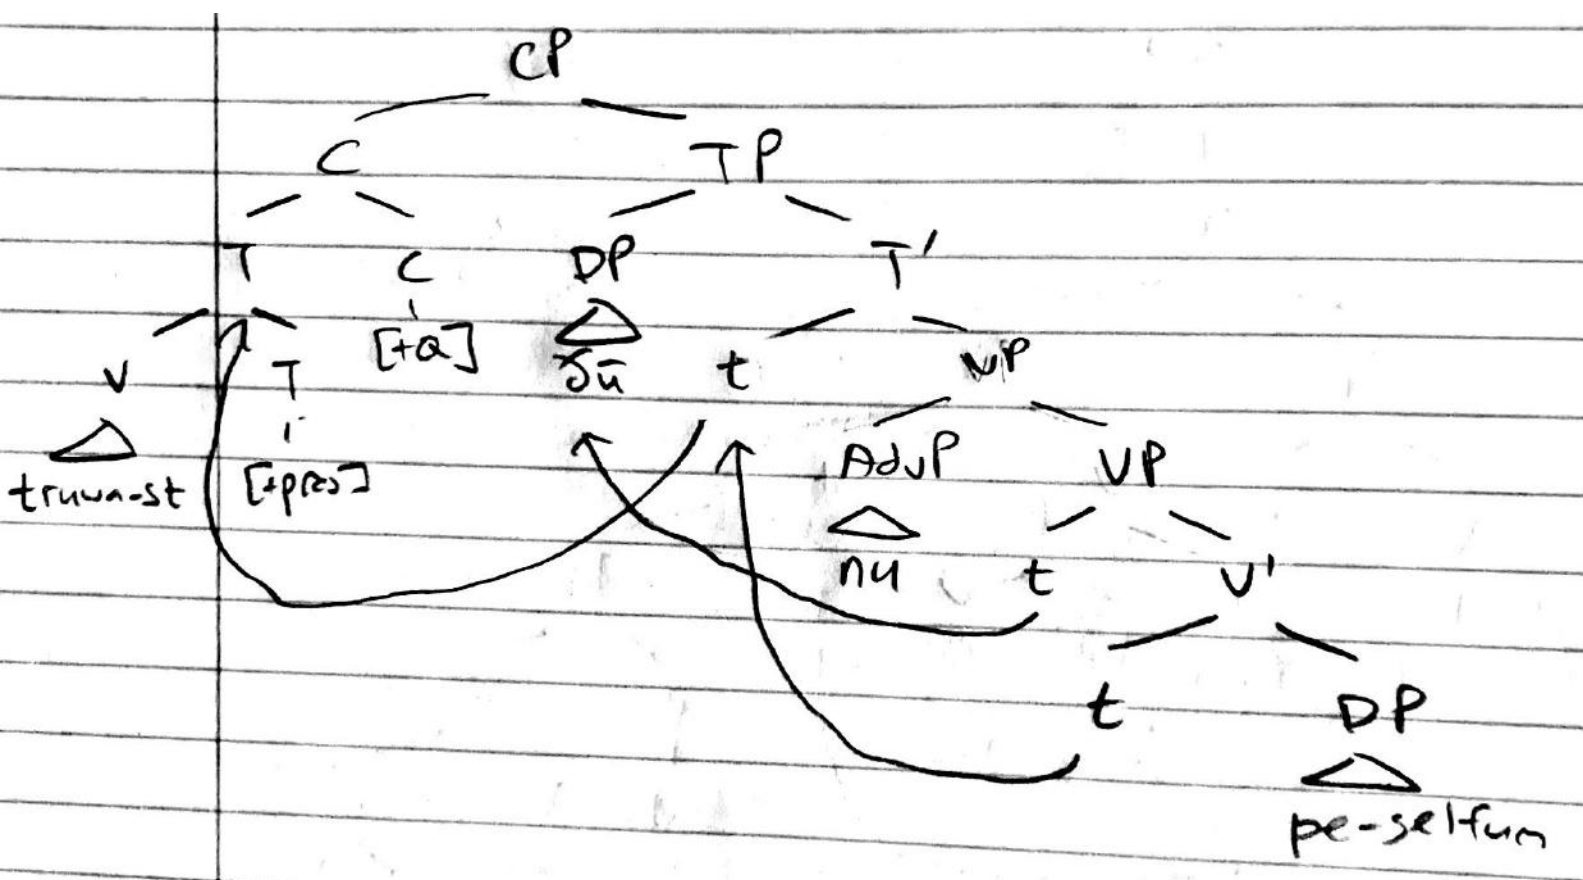 CP
C TP
T C DP T'
V T [+Q] ðū t VP
truwa-st [+pres] AdvP VP
nu t V'
t DP
pe-selfum